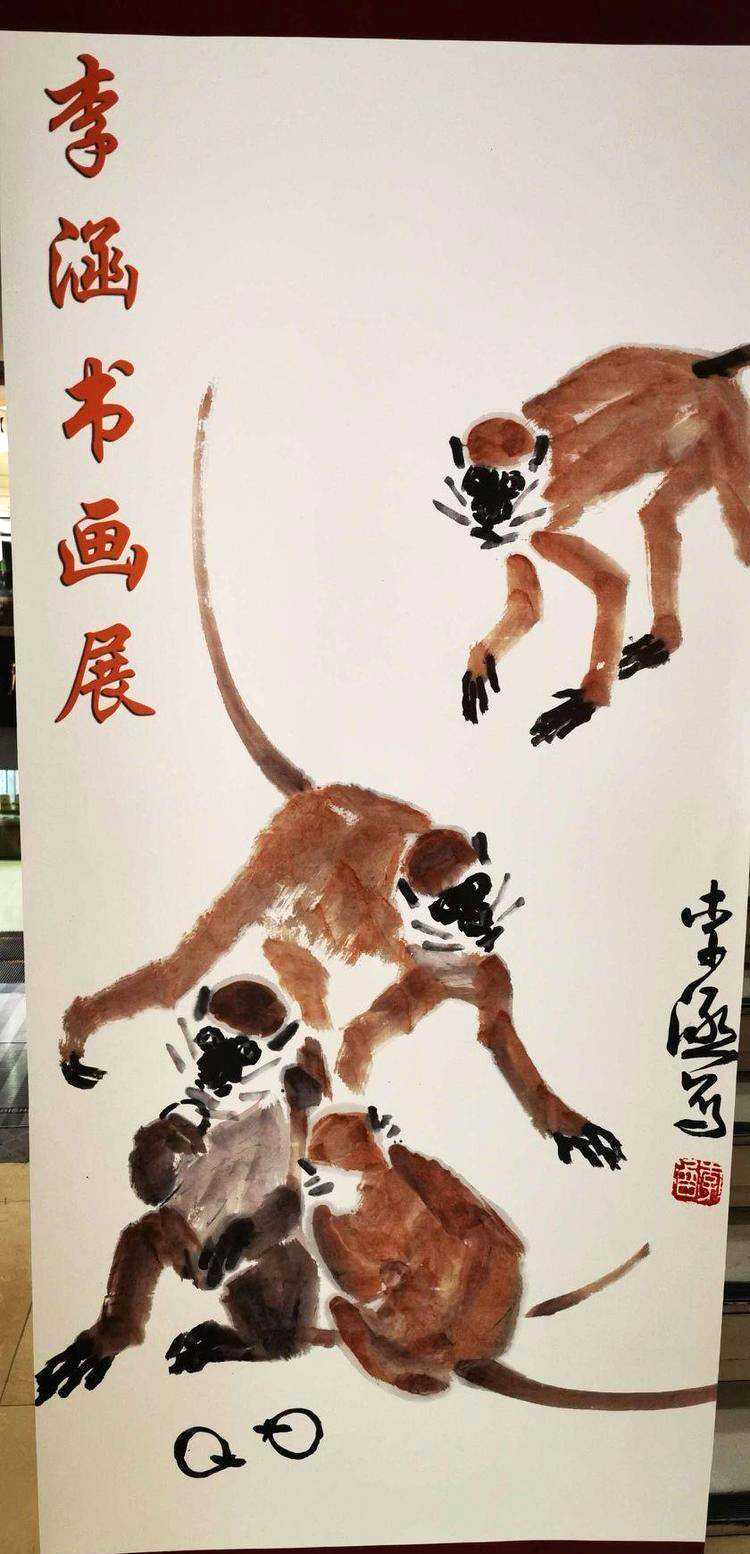 李涵书画展
李涵写